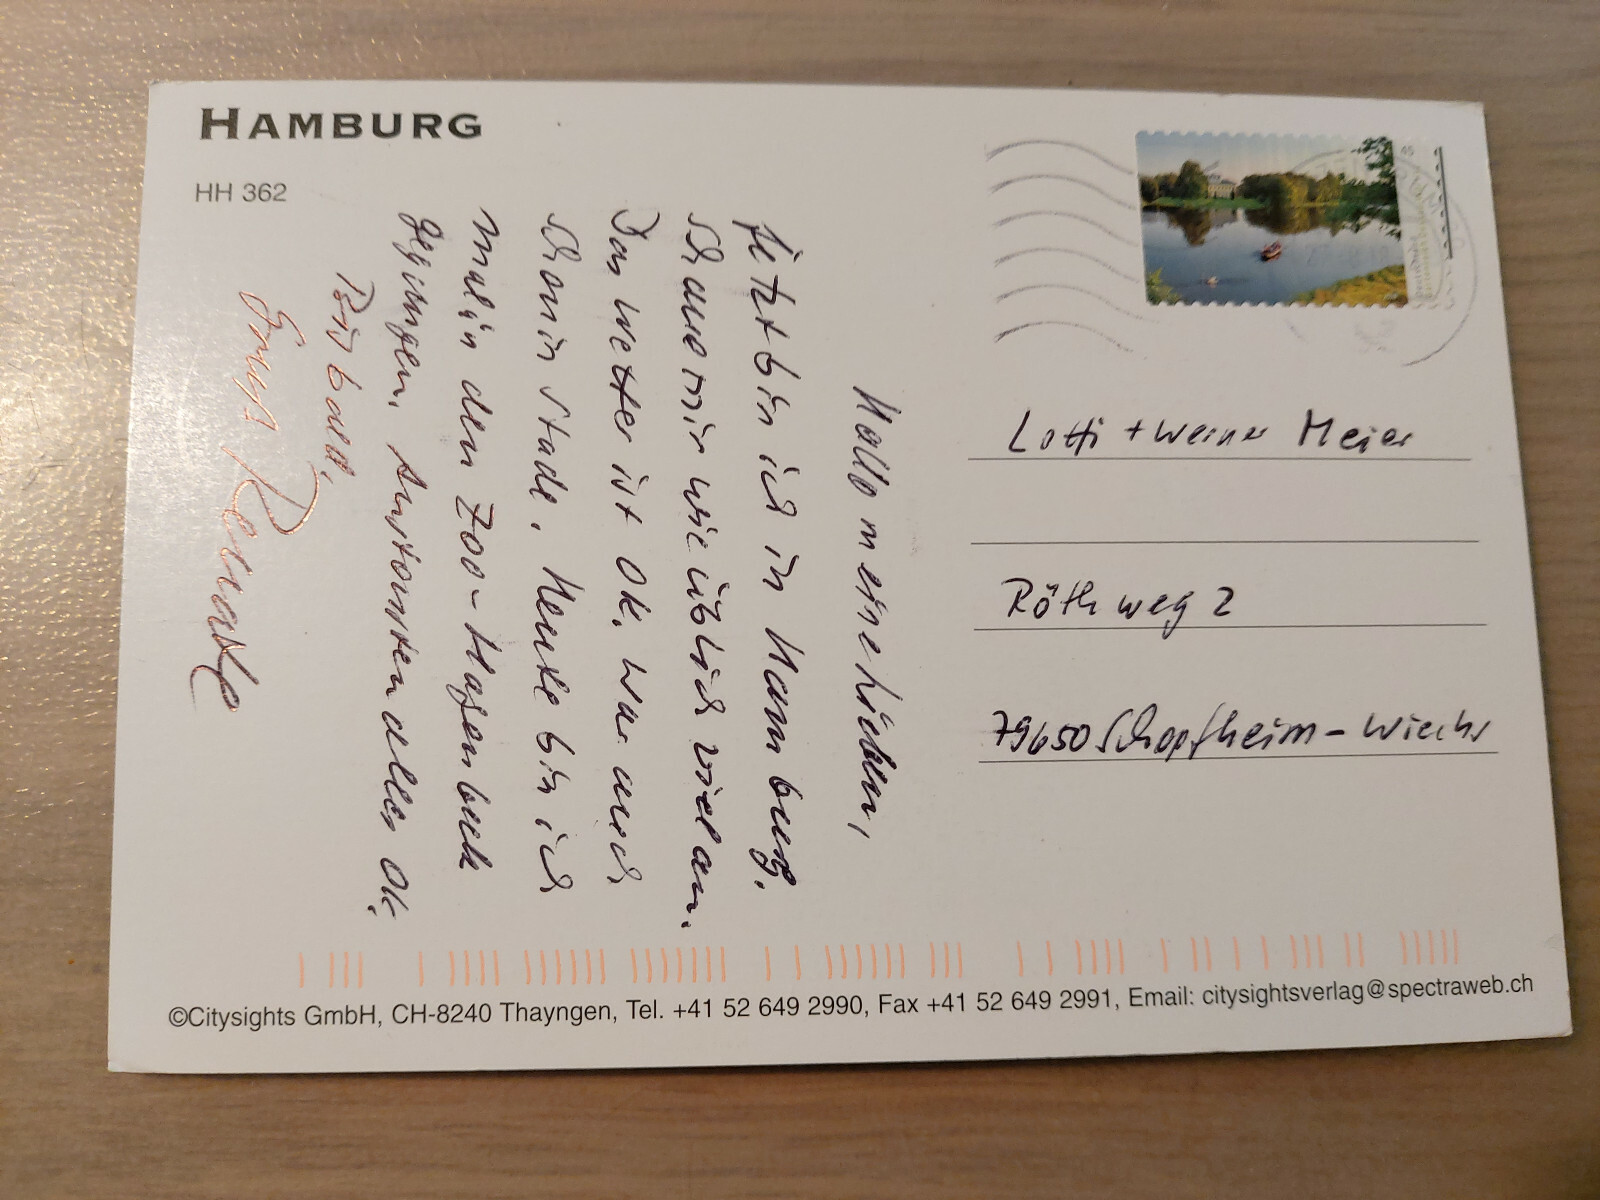 HAMBURG
HH 362
Hallo meine Lieben,
jetzt bin ich in Hamburg.
Schaue mir wie üblich viel an.
Das Wetter ist ok. War auch
schon in Stade. Heute bin ich
mal in den Zoo - Hagenbeck
gegangen. Ansonsten alles ok.
Bis bald,
Gruß Renate
45
Lotti + Werner Meier
Röthweg 2
79650 Schopfheim - Wiechs
©Citysights GmbH, CH-8240 Thayngen, Tel. +41 52 649 2990, Fax +41 52 649 2991, Email: citysightsverlag@spectraweb.ch